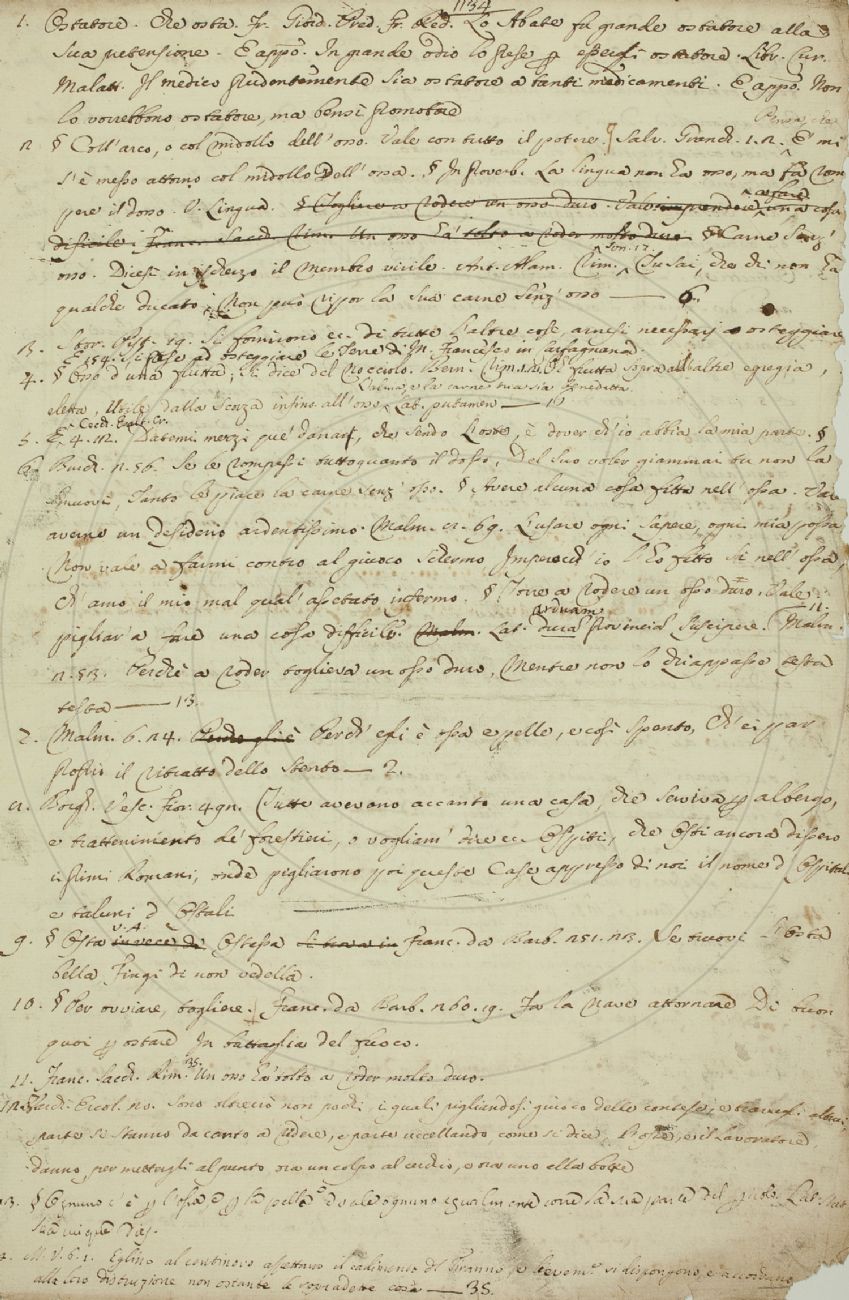 1134
1. Ostatore. Che osta. Fr. Giord. Pred. Fr. Red. Lo Abate fu grande ostatore alla
sua pretensione. E appo. In grande odio lo prese p essergli ostatore. Libr. Cur.
Malatt. Il medico prudentemente sia ostatore a tanti medicamenti. E appo. Non
lo vorrebbono ostatore, ma bensì promotore
2 § Coll'arco, o col midollo dell'osso. Vale con tutto il potere. Salv. Granch. 1. 2. E' mi
s'è messo attorno col midollo dell'ossa. § In proverb. La lingua non ha osso, ma fa rom
pere il dosso. V. Lingua. § Togliere a rodere un osso duro. Vale imprendere una cosa
difficile. Franc. Sacch. Rim. Un osso ha' tolto a roder molto duro. § Carne senz'
osso. Dicesi in ischerzo il membro virile. Ant. Alam. Rim. Son. 17. che chi non ha
qualche ducato, Non può ripor la sua carne senz'osso — 6.
3. Stor. Pist. 19. Si fornirono ec. di tutte l'altre cose, arnesi necessarj a osteggiare
E 154. Si pose ad osteggiare le Terre di M. Francesco in Garfagnana
4. § Osso d'una frutta; si dice del Nocciolo. Bern. Rim. frutta sopra all'altre egregia,
eletta, Utile dalla scorza infino all'osso Lat. putamen — 16
L'alma, e la carne tua sia benedetta.
5. E 4. 112. Datemi mezzi que' danari, che sendo l'oste, è dover ch'io abbia la mia parte. §
6. Burch. 2. 56. Se le rompessi tuttoquanto il dosso, Del suo voler giammai tu non la
smuovi, Tanto le piace la carne senz'osso. § Avere alcuna cosa fitta nell'ossa. Vale
averne un desiderio ardentissimo. Malm. 69. L'usare ogni sapere, ogni mia possa
Non vale a farmi contro al giuoco schermo Imperocch'io l'ho fitto sì nell'ossa,
Ch'amo il mio mal qual'assetato infermo. § Torre a rodere un osso duro. Vale
pigliar' a fare una cosa difficile. Malm. Lat. duram arduam provinciam suscipere. Malm. 11.
53. Perchè a roder toglieva un osso duro, Mentre non lo chiappasse testa
testa — 13.
7. Malm. 6. 24. Perch'egli è Perch'egli è ossa e pelle, e così spento, Ch'ei par
proprio il ritratto dello Stento — 2.
Borgh. Vesc. Fior. Tutte avevano accanto una casa, che serviva p albergo,
e trattenimento de' forestieri, o vogliam' dire ec. Ospiti, che Osti ancora dissero
i primi Romani, onde pigliarono poi queste Case appresso di noi il nome d'Ospitali
e taluni d'Ostali
9. § Osta v. A. invece di Ostessa si trova in Franc. da Barb. 251. 23. Se truovi l'Osta
bella Fingi di non vedella.
10. § Per ovviare, togliere. Franc. da Barb. 260. 19. Fa la nave attornare Di buon
quoi p ostare In battaglia del fuoco.
11. Franc. Sacch. Rim. 35. Un osso ha' tolto a roder molto duro.
12. Varch. Ercol. Sono oltracciò non pochi, i quali pigliandosi giuoco delle contese, e travagli altrui,
parte si stanno da canto a ridere, e parte uccellando come si dice, l'oste, e il lavoratore
danno, per mettergli al punto, ora un colpo al cerchio, e ora uno alla botte
13. § Ognuno c'è p l'ossa, e p la pelle vale ognuno egualmente corre la sua parte del
M. V. 6. 1. Eglino al continovo aspettano il cadimento del tiranno, e si dispongono, e
alla loro distruzione non ostante le sopradette cose — 35.